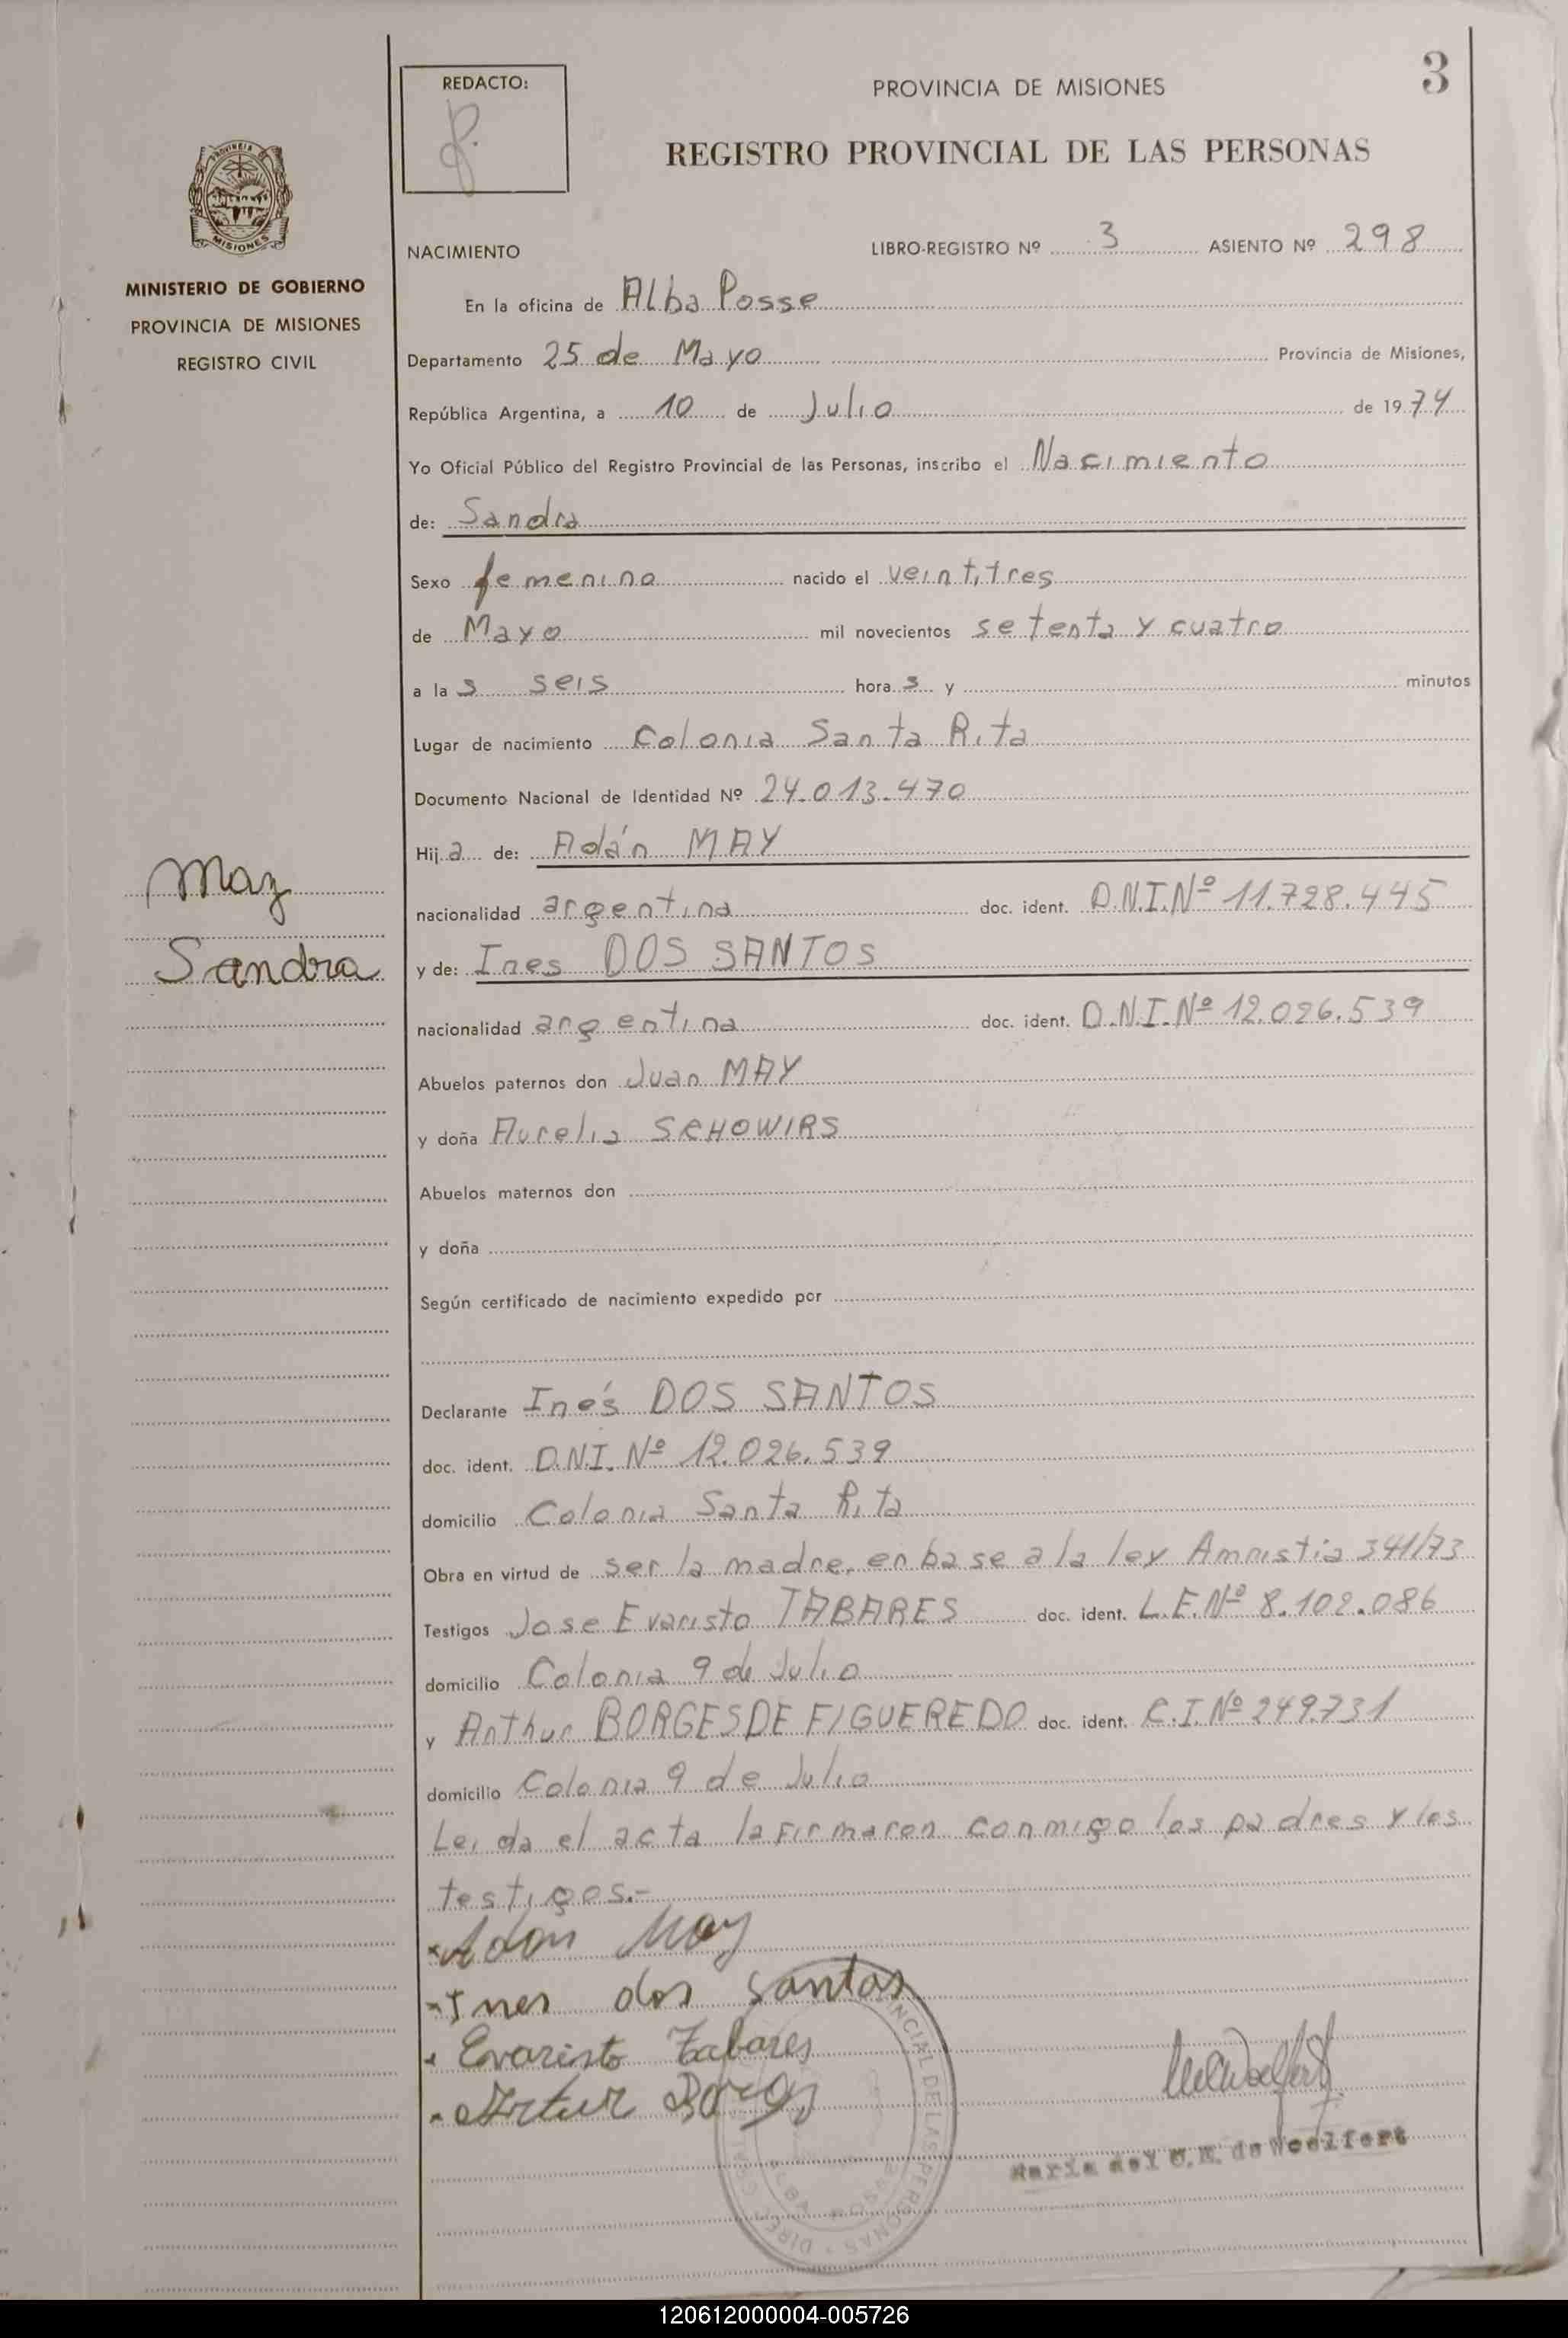 3
REDACTO:
PROVINCIA DE MISIONES
REGISTRO PROVINCIAL DE LAS PERSONAS
PROVINCIA DE
MISIONES
MINISTERIO DE GOBIERNO
PROVINCIA DE MISIONES
REGISTRO CIVIL
NACIMIENTO LIBRO-REGISTRO Nº 3 ASIENTO Nº 298
En la oficina de Alba Posse
Departamento 25 de Mayo Provincia de Misiones,
República Argentina, a 10 de Julio de 1974
Yo Oficial Público del Registro Provincial de las Personas, inscribo el Nacimiento
de: Sandra
Sexo femenino nacido el veintitres
de Mayo mil novecientos setenta y cuatro
a las seis horas y minutos
Lugar de nacimiento Colonia Santa Rita
Documento Nacional de Identidad Nº 24.013.470
Hija de: Adán MAY
May
nacionalidad argentina doc. ident. D.N.I.Nº 11.728.445
Sandra
y de: Ines DOS SANTOS
nacionalidad argentina doc. ident. D.N.I.Nº 12.026.539
Abuelos paternos don Juan MAY
y doña Aurelia SCHOWIRS
Abuelos maternos don
y doña
Según certificado de nacimiento expedido por
Declarante Inés DOS SANTOS
doc. ident. D.N.I. Nº 12.026.539
domicilio Colonia Santa Rita
Obra en virtud de ser la madre, en base a la ley Amnistia 341/73
Testigos Jose Evaristo TABARES doc. ident. L.E.Nº 8.102.086
domicilio Colonia 9 de Julio
y Arthur BORGES DE FIGUEREDO doc. ident. C.I.Nº 249.731
domicilio Colonia 9 de Julio
Leida el acta la firmaron conmigo los padres y los
testigos.-
Adan May
Ines dos santos
Evaristo Tabares
Artur Borges
Maria del C.M. de Woelfert
120612000004-005726